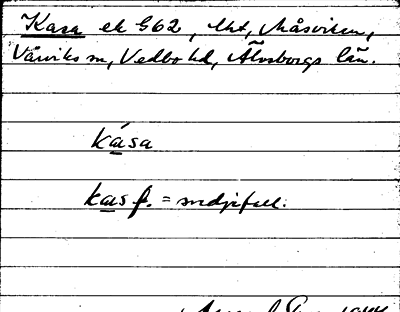 Kasa ek G62, Måsviken,
Vårviks sn, Vedbo hd, Älvsborgs län.
kása
kas f. = svedjefall.